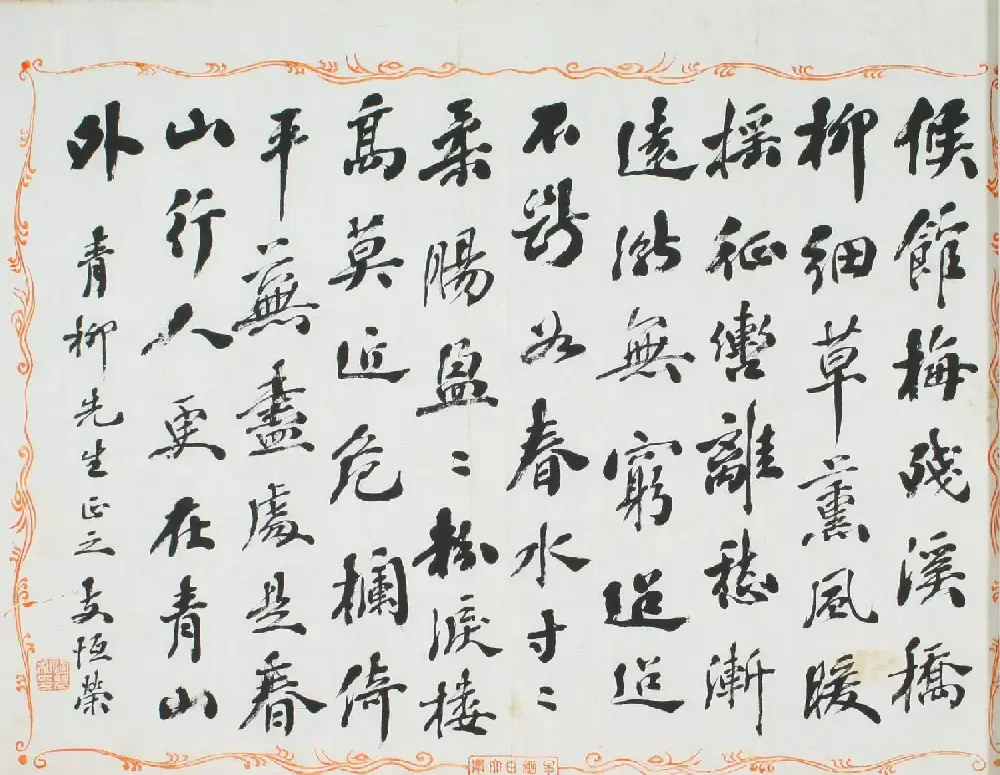 候館梅殘溪橋
柳細草薰風暖
搖征轡離愁漸
遠漸無窮迢迢
不斷如春水寸〻
柔腸盈〻粉淚樓
高莫近危欄倚
平蕪盡處是春
山行人更在青山
外
青柳先生正之支恒榮